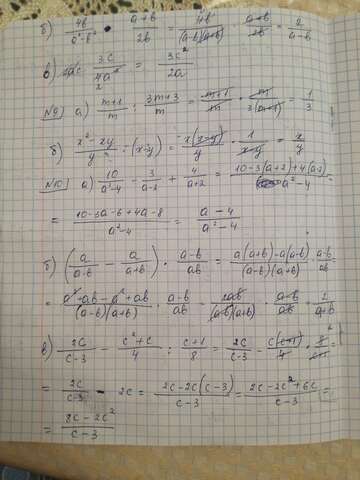 б) 4b/(a²-b²) · (a+b)/2b = 4b/((a-b)(a+b)) · (a+b)/2b = 2/(a-b)
в) 2ac · 3c/4a² = 3c²/2a
№9) а) (m+1)/m : (3m+3)/m = (m+1)/m · m/(3(m+1)) = 1/3
б) (x²-xy)/y : (x-y) = x(x-y)/y · 1/(x-y) = x/y
№10) а) 10/(a²-4) - 3/(a-2) + 4/(a+2) = (10-3(a+2)+4(a-2))/(a²-4) =
= (10-3a-6+4a-8)/(a²-4) = (a-4)/(a²-4)
б) (a/(a-b) - a/(a+b)) · (a-b)/ab = (a(a+b)-a(a-b))/((a-b)(a+b)) · (a-b)/ab
= (a²+ab-a²+ab)/((a-b)(a+b)) · (a-b)/ab = 2ab/((a-b)(a+b)) · (a-b)/ab = 2/(a+b)
в) 2c/(c-3) - (c²+c)/4 : (c+1)/8 = 2c/(c-3) - c(c+1)/4 · 8/(c+1) =
= 2c/(c-3) - 2c = (2c-2c(c-3))/(c-3) = (2c-2c²+6c)/(c-3) =
= (8c-2c²)/(c-3)